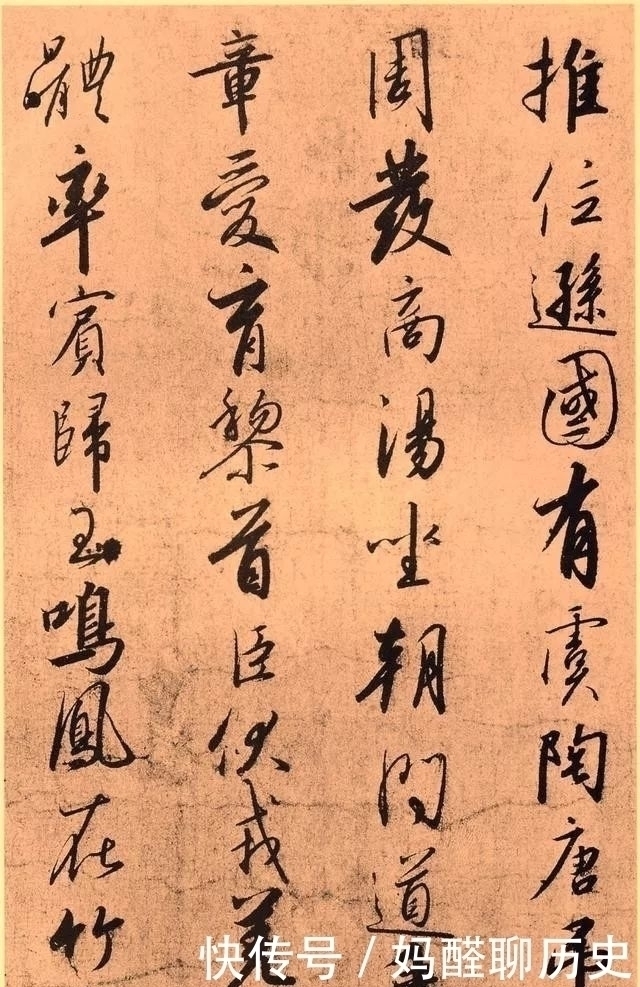 推位遜國有虞陶唐弔
周發商湯坐朝問道
章愛育黎首臣伏戎羌
體率賓歸王鳴鳳在竹
快传号/妈醛聊历史